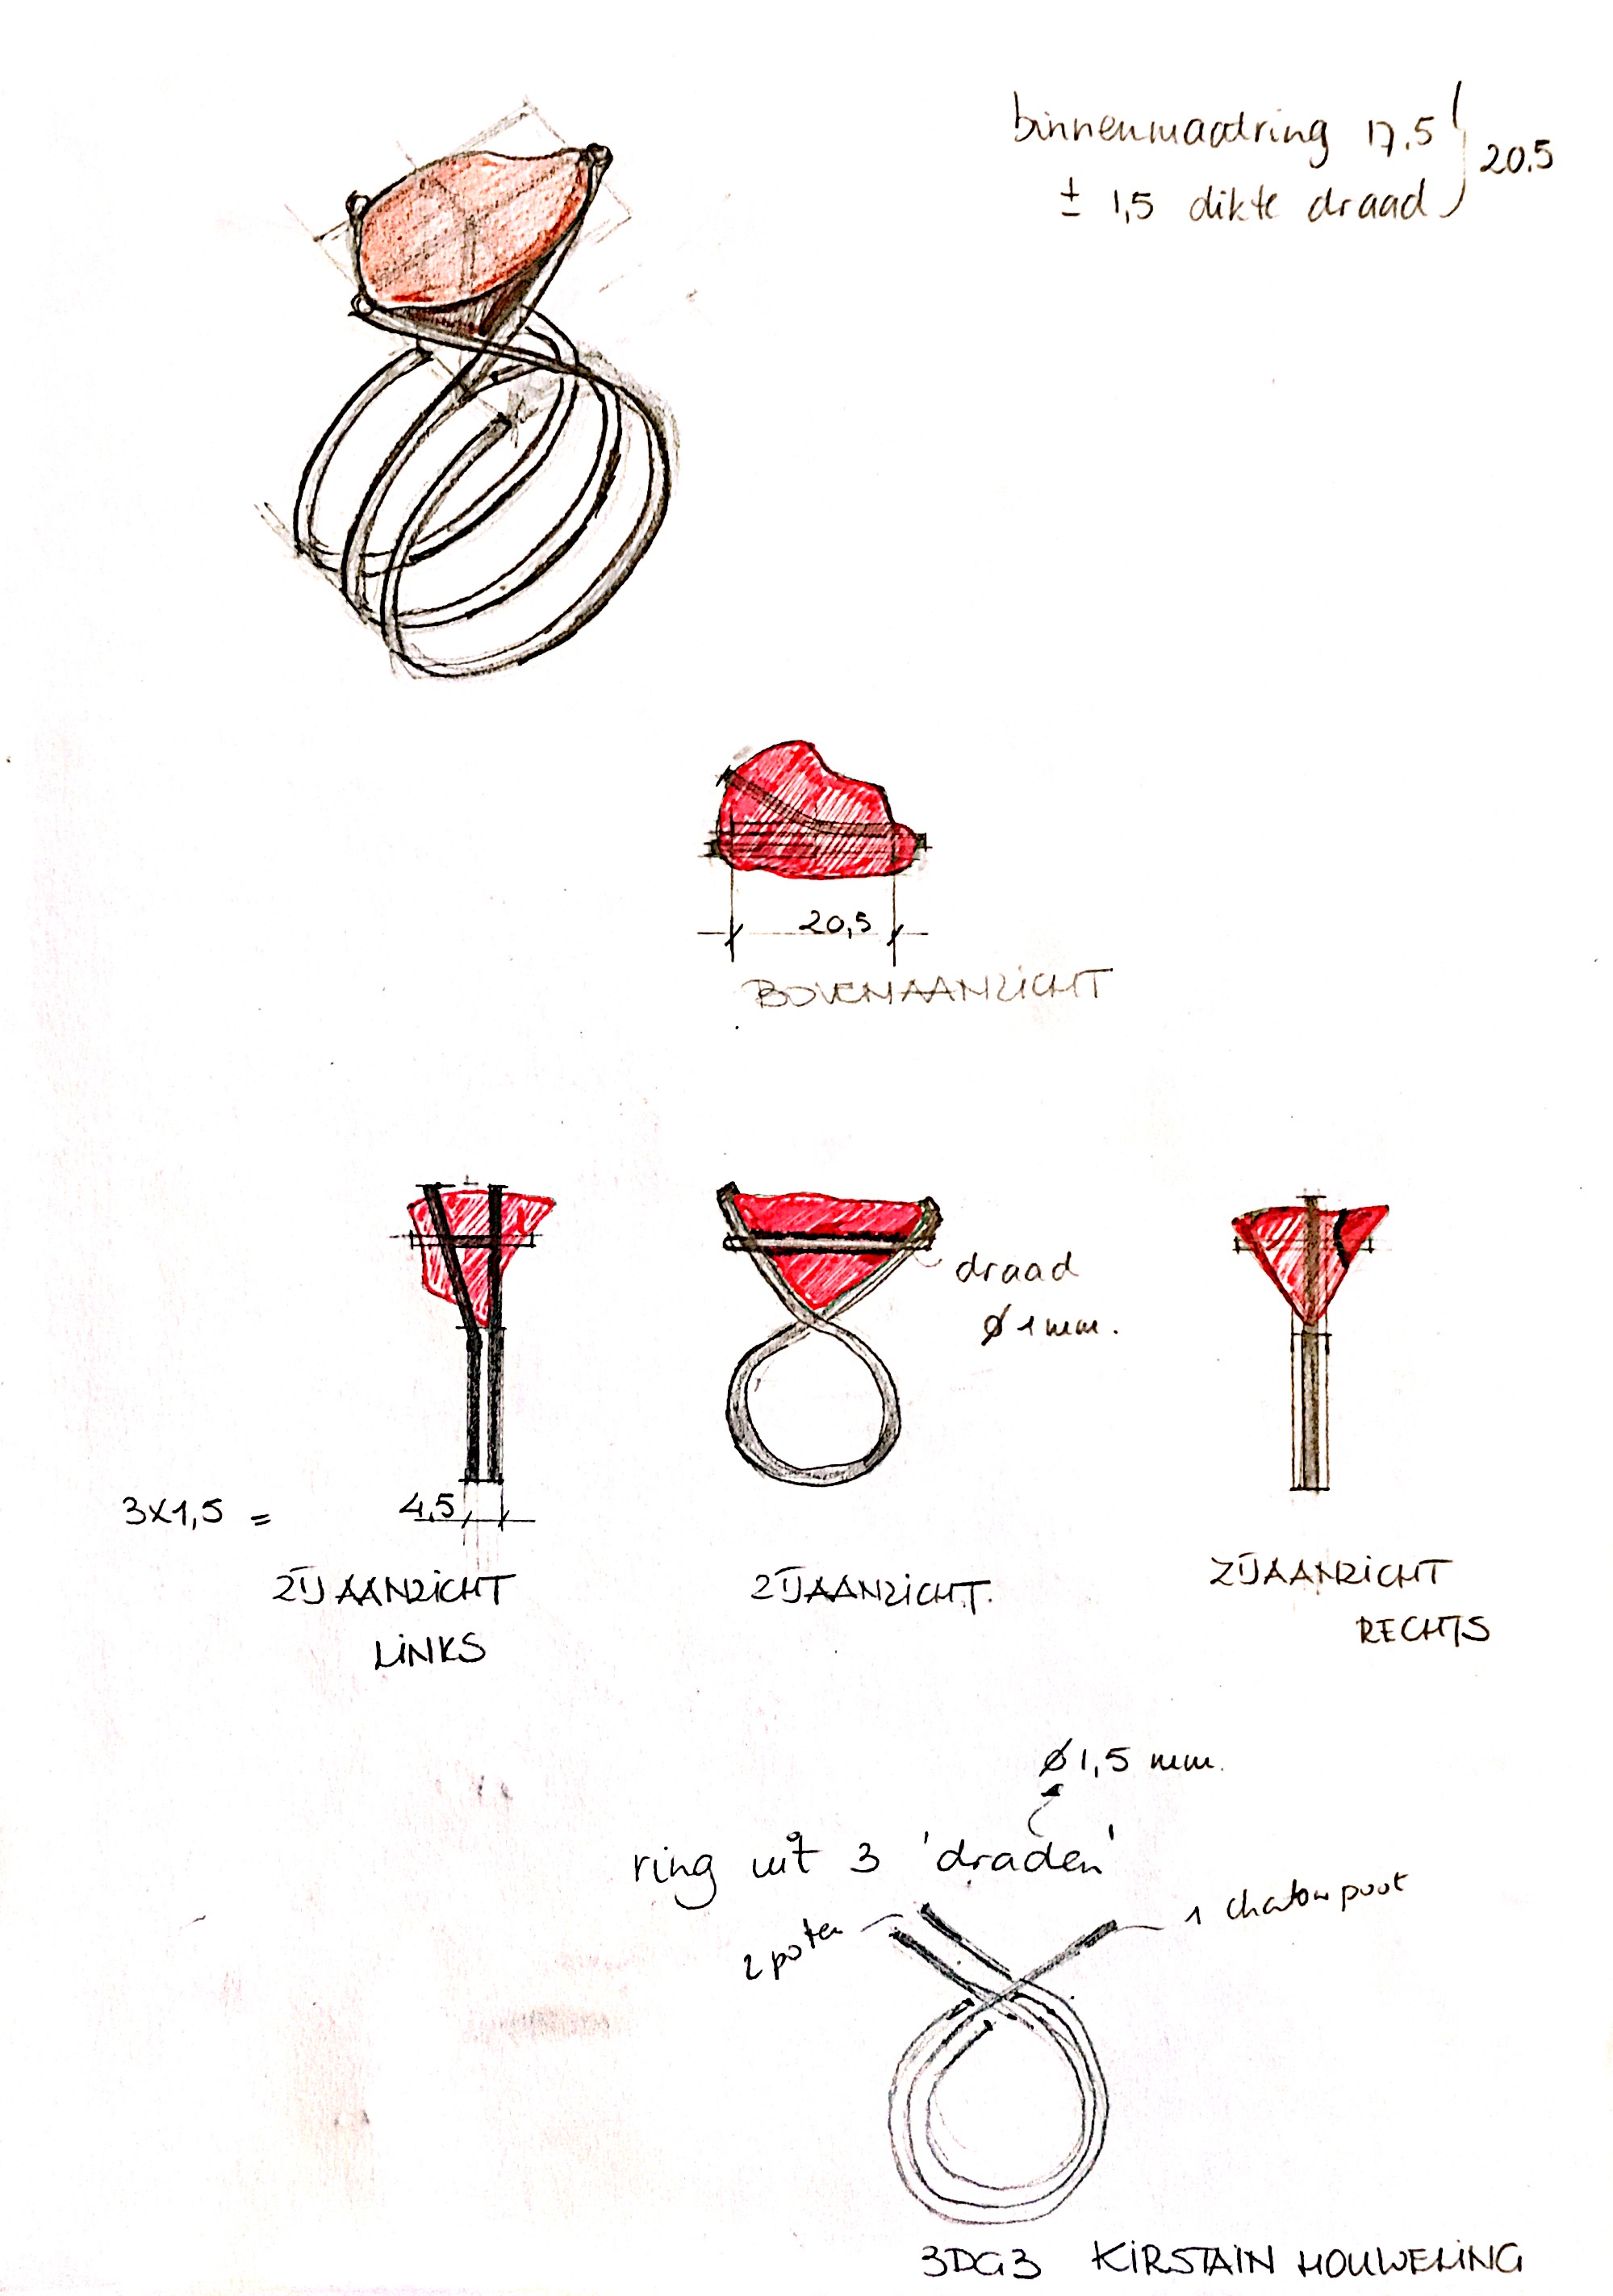 binnenmaatring 17.5
20.5
± 1,5 dikte draad
20,5
BOVENAANZICHT
draad
ø 1 mm.
3x1,5 =
4,5
ZIJAANZICHT
LINKS
ZIJAANZICHT.
ZIJAANZICHT
RECHTS
ø 1,5 mm.
ring uit 3 'draden'
2 poten
1 chatonpoot
3DG3 KIRSTAIN HOUWELING